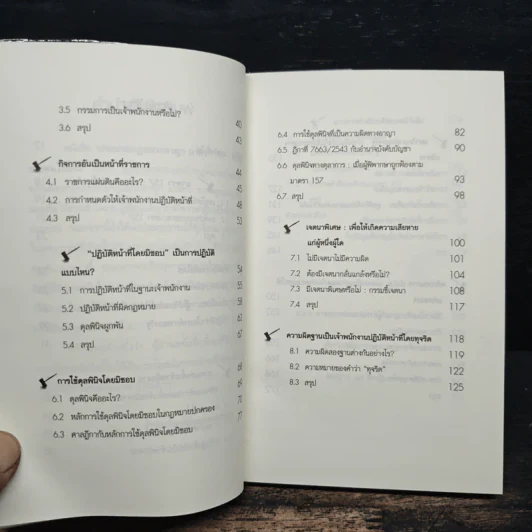 3.5 กรรมการเป็นเจ้าพนักงานหรือไม่? 40
3.6 สรุป 43
กิจการอันเป็นหน้าที่ราชการ 44
4.1 ราชการแผ่นดินคืออะไร? 45
4.2 การกำหนดตัวให้เจ้าพนักงานปฏิบัติหน้าที่ 48
4.3 สรุป
"ปฏิบัติหน้าที่โดยมิชอบ" เป็นการปฏิบัติ
แบบไหน? 54
5.1 การปฏิบัติหน้าที่ในฐานะเจ้าพนักงาน 55
5.2 ปฏิบัติหน้าที่ผิดกฎหมาย
5.3 ดุลพินิจผูกพัน
5.4 สรุป 67
การใช้ดุลพินิจโดยมิชอบ
6.1 ดุลพินิจคืออะไร? 69
6.2 หลักการใช้ดุลพินิจโดยมิชอบในกฎหมายปกครอง 70
6.3 ศาลฎีกากับหลักการใช้ดุลพินิจโดยมิชอบ 77
6.4 การใช้ดุลพินิจที่เป็นความผิดทางอาญา 82
6.5 ฎีกาที่ 7663/2543 กับอำนาจบังคับบัญชา 90
6.6 ดุลพินิจทางตุลาการ : เมื่อผู้พิพากษาถูกฟ้องตาม
มาตรา 157 93
6.7 สรุป 98
เจตนาพิเศษ : เพื่อให้เกิดความเสียหาย
แก่ผู้หนึ่งผู้ใด 100
7.1 ไม่มีเจตนาไม่มีความผิด 101
7.2 ต้องมีเจตนากลั่นแกล้งหรือไม่? 104
7.3 มีเจตนาพิเศษหรือไม่ : กรรมชี้เจตนา 108
7.4 สรุป 117
ความผิดฐานเป็นเจ้าพนักงานปฏิบัติหน้าที่โดยทุจริต 118
8.1 ความผิดสองฐานต่างกันอย่างไร? 119
8.2 ความหมายของคำว่า "ทุจริต" 122
8.3 สรุป 125